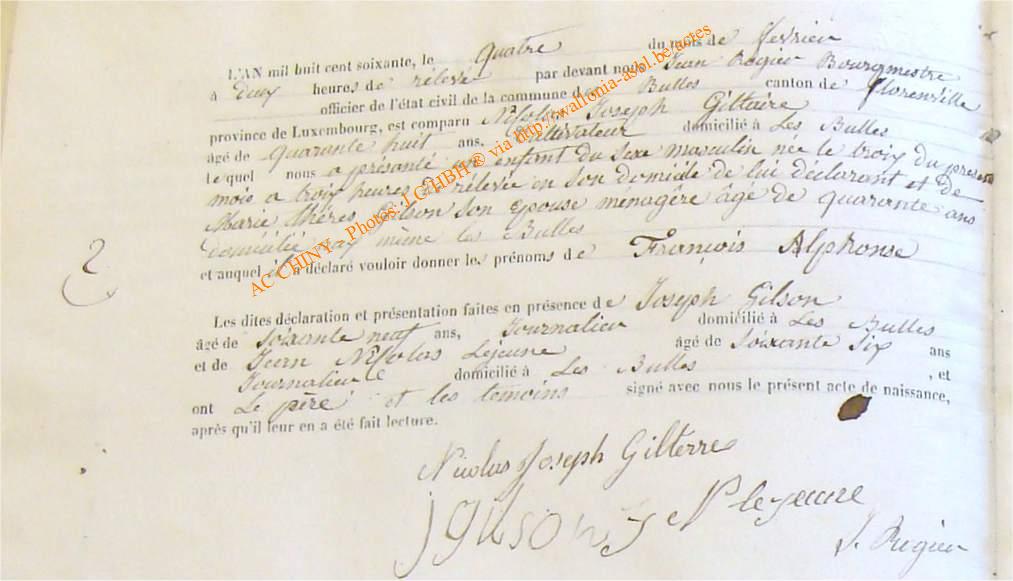 L'AN mil huit cent soixante, le quatre du mois de fevrier
à deux heures de relevé par devant nous Jean Rogier Bourgmestre
officier de l'état civil de la commune de Bulles canton de florenville
province de Luxembourg, est comparu Nicolas Joseph Giltaire
âgé de quarante huit ans, Cultivateur domicilié à Les Bulles
Le quel nous a présanté un enfant du Sexe masculin née le troix du present
mois a troix heures de rélevée en son domicile de lui déclarant et de
Marie thérès Gilson Son epouse menagère âgé de quarante ans
domicilié même les Bulles
et auquel il a déclaré vouloir donner les prénoms de François Alphonse
2
Les dites déclaration et présentation faites en présence de Joseph Gilson
âgé de Soixante neuf ans, Journalier domicilié à Les Bulles
et de Jean Nicolas Lejeune âgé de Soixante Six ans
Journalier domicilié à Les Bulles , et
ont Le père et les temoins signé avec nous le présent acte de naissance,
après qu'il leur en a été fait lecture.
Nicolas Joseph Gilterre
J Gilson N lejeune
J. Rogier
AC CHINY - Photos: J GHBH ® via http://wallonia-asbl.be/actes